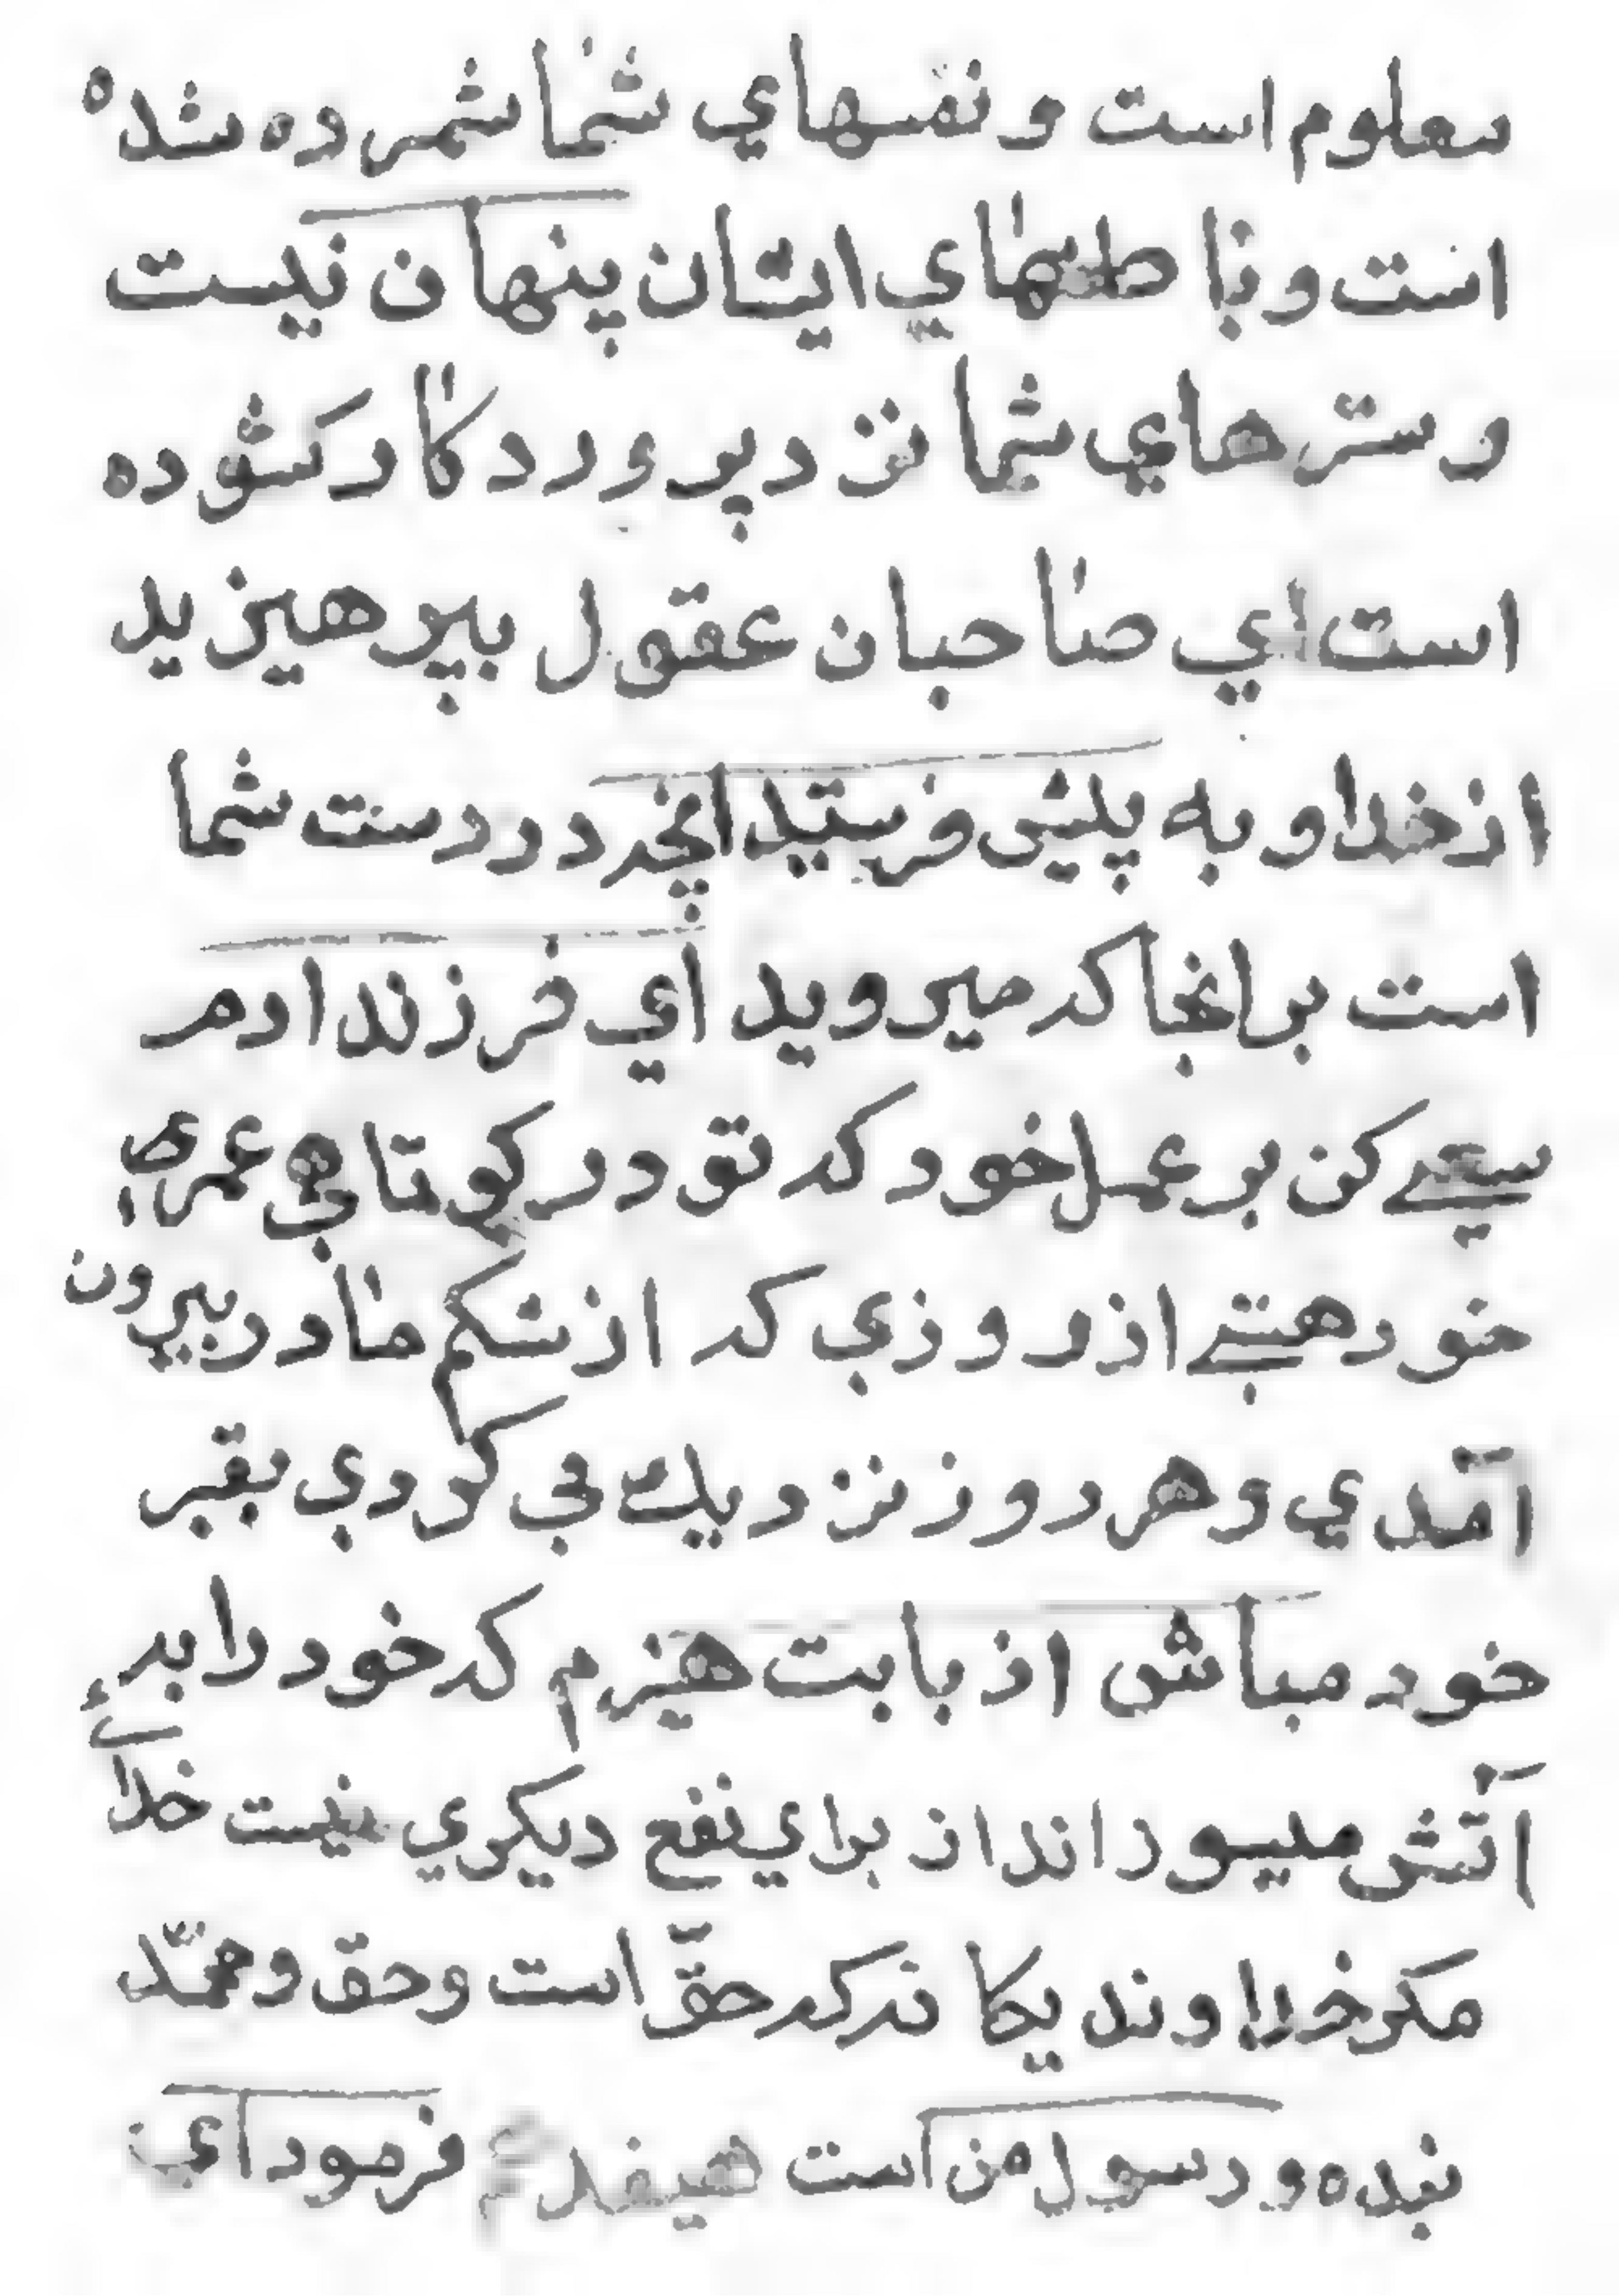 معلوم است و نفسهاي شما شمرده شده
است و باطنهاي ايشان پنهان نيست
و سترهاي شما نزد پروردكار كشوده
است اي صاحبان عقول بپرهيزيد
از خدا و به پيش فرستيد انچه در دست شما
است بر انجا كه ميرويد اي فرزند ادم
سعي كن بر عمل خود كه تو در كوتاهي عمر
خود هستي از روزي كه از شكم مادر بيرون
آمدي و هر روز نزديك مي كردي بقبر
خود مباش از بابت هيزم كه خود را به
آتش ميسوزاند از براي نفع ديكري نيست خدائ
مكر خداوند يكانه كه حقّ است و حق و محمّد
بنده و رسول من است هيفدهم فرمود اي